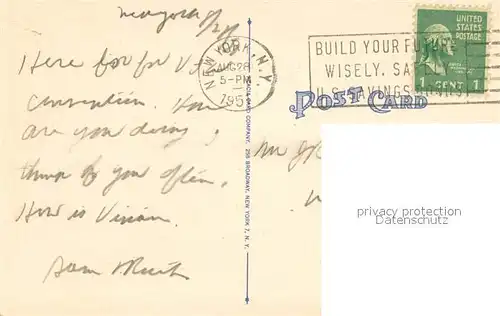 New York
Here for
Convention. How
are you doing,
think of you often,
How is Vivian.
Sam
NEW YORK, N.Y.
AUG 28
5-PM
195
BUILD YOUR FUTURE
WISELY. SA
U.S. SAVINGS BONDS
UNITED
STATES
POSTAGE
1 CENT 1
POST CARD
CARD COMPANY, 256 BROADWAY, NEW YORK 7, N. Y.
privacy protection
watermark